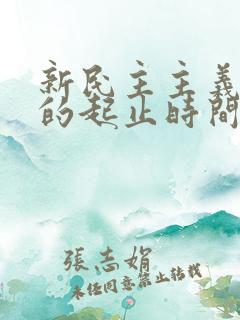 新民主主義
的起止時間
張志娟
未经同意禁止转载